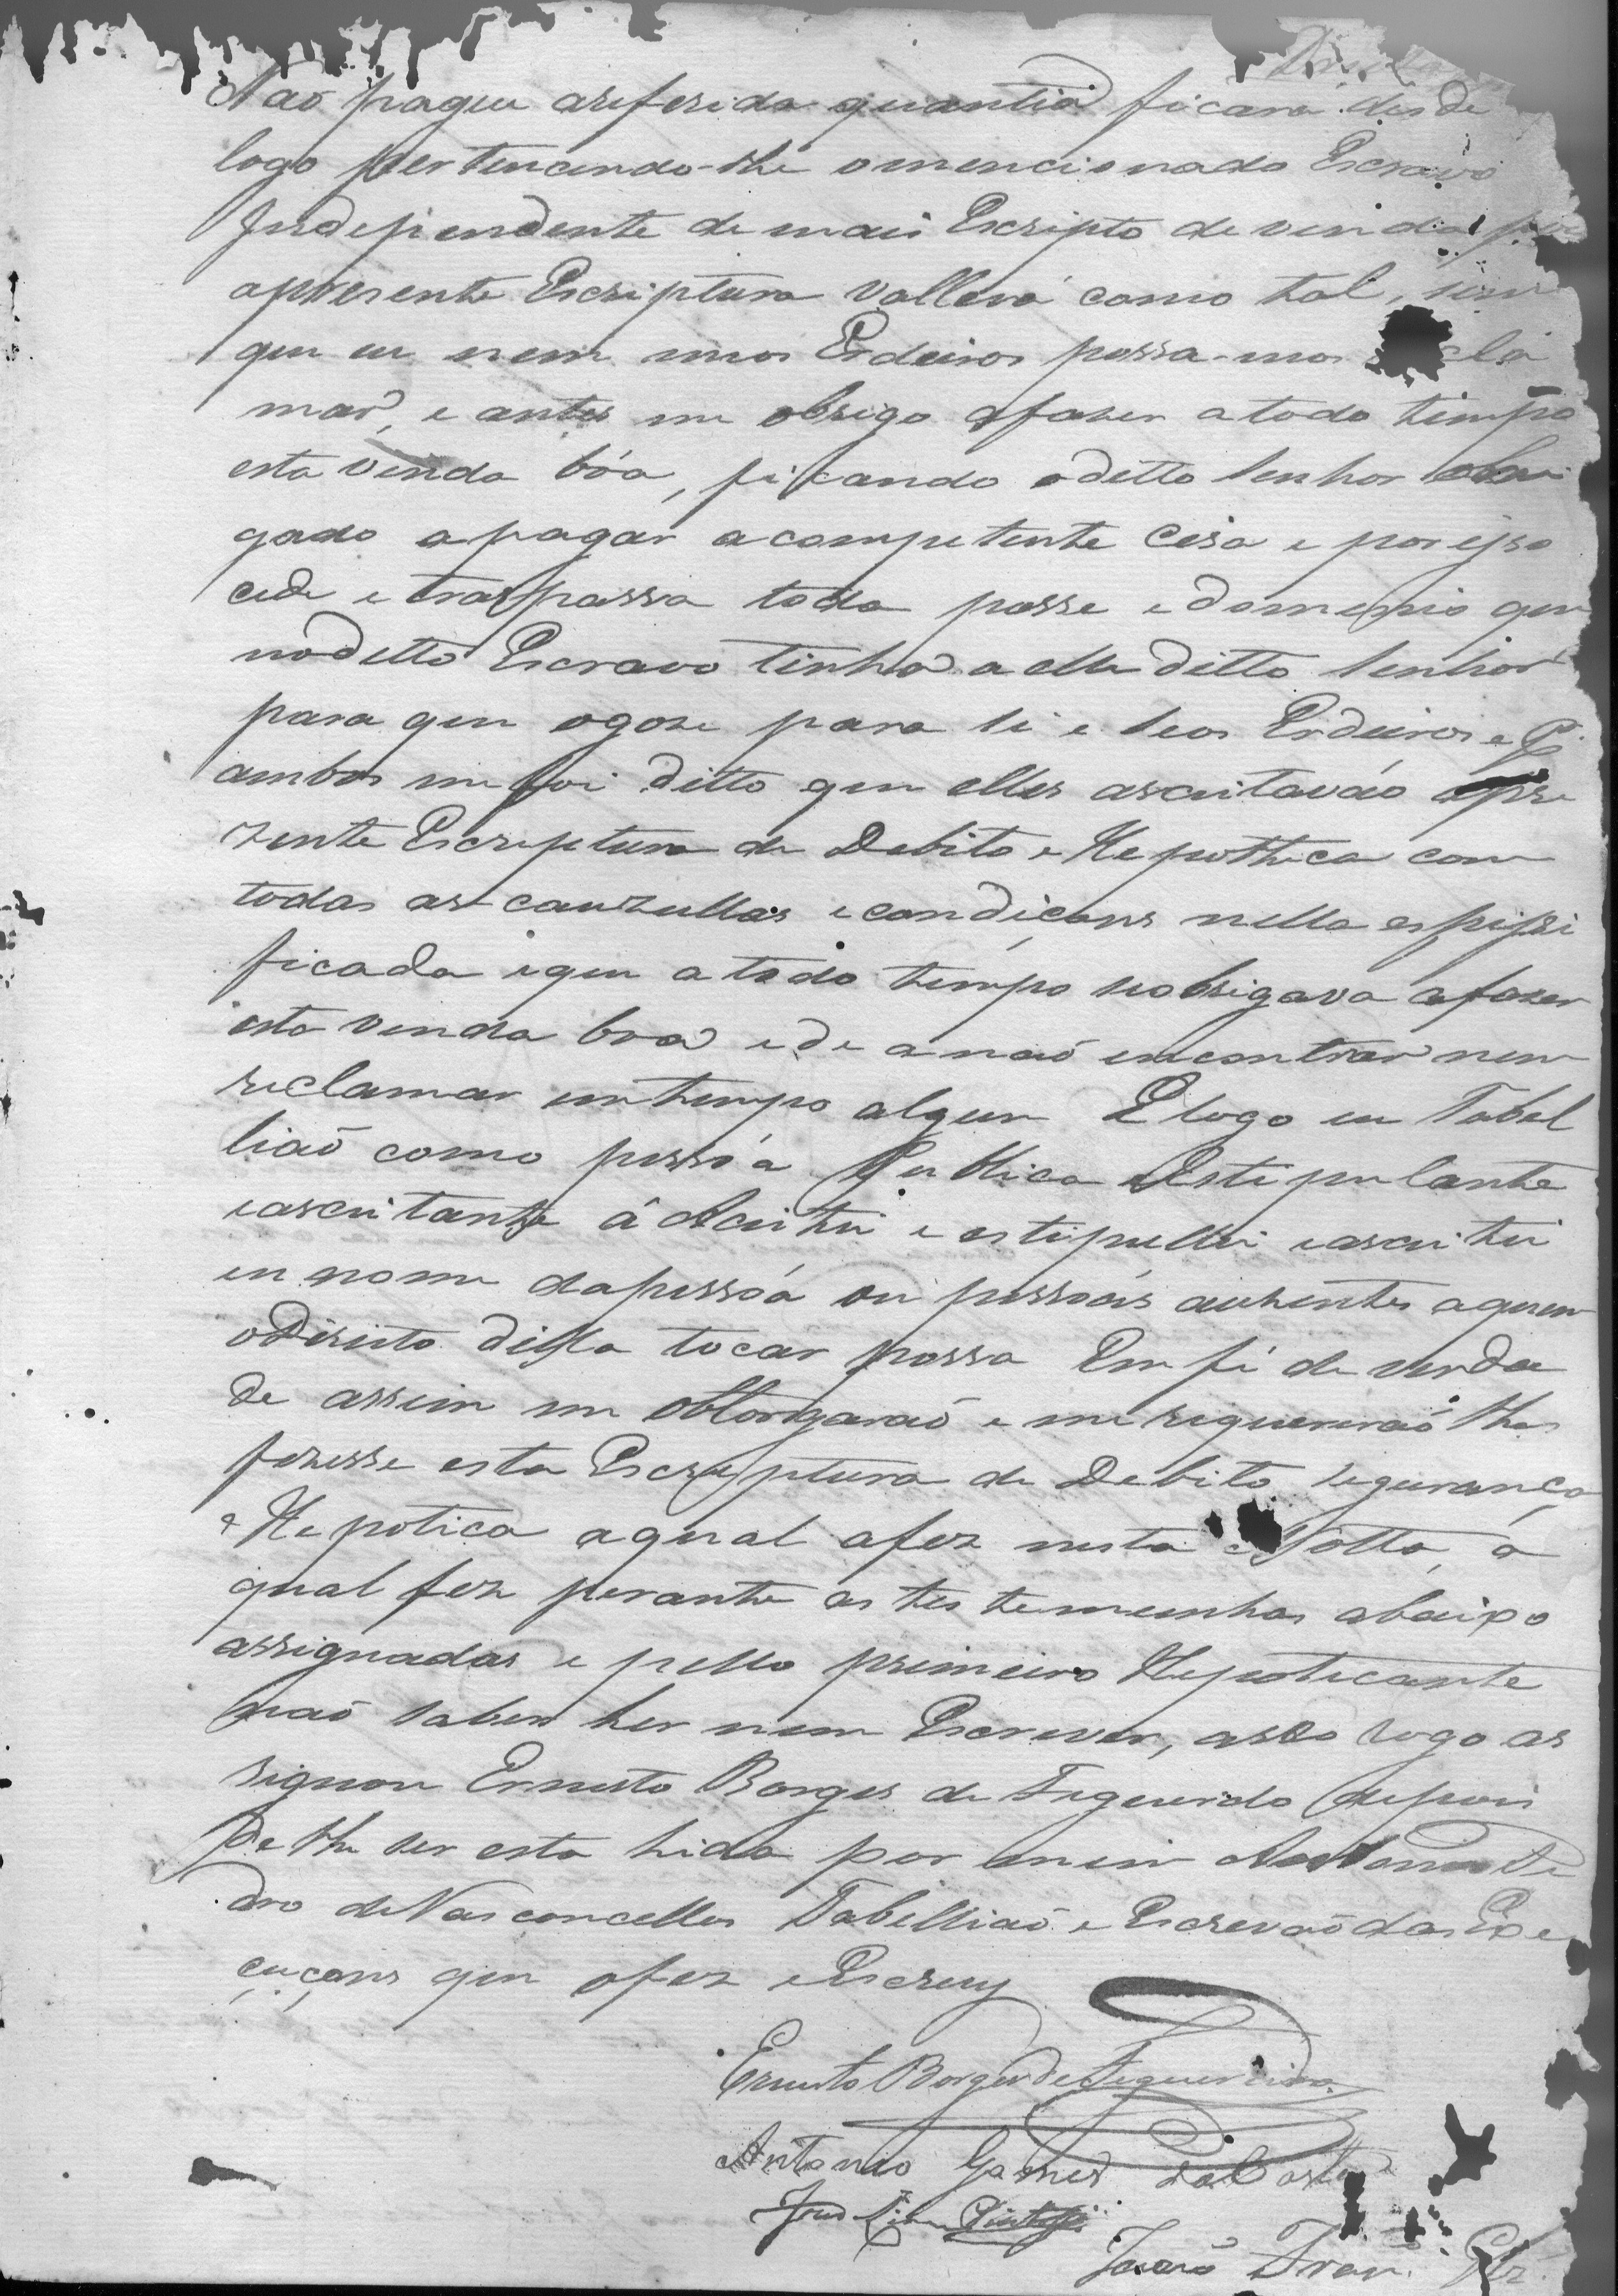 Não pague areferida quantia ficará desde
logo pertencendo-lhe omencionado Escravo
Independente de mais Escripto de venda
apresente Escriptura vallerá como tal, sem
que eu nem meos Erdeiros possa-mos recla
mar, e antes me obrigo afazer a todo tempo
esta venda bôa, ficando oditto Senhor obri
gado apagar acompetente Cisa e porisso
cede e traspassa toda posse e domenio que
noditto Escravo tinha a elle ditto Senhor
para que ogoze para si e seos Erdeiros e P.
ambos me foi ditto que elles asceitavão apre
zente Escreptura de Debito e Hepotheca com
todas as cauzullas e condiçons nella espissi
ficada eque a todo tempo seobrigava afazer
esta venda boa ede anaõ encontrar nem
reclamar em tempo algum E logo eu Tabel
liaõ como pessôa Publica Estipulante
easceitante â Aceitei e estipullei easceitei
em nome dapessôa ou pessôas auzentes aquem
oDireito della tocar possa Em fé de verda
de assim me oltorgaraõ e me requereraõ lhes
fizesse esta Escreptura de Debito segurança
e Hepotica aqual afez nesta Notta, a
qual fez perante as testemunhas abaixo
assignadas e pello primeiro Hepoticante
naõ saber ler nem Escrever, aseo rogo as
signou Ernesto Borges de Figueiredo depois
de lhe ser esta lida por mim Antonio Pe
dro de Vasconcellos Tabelliaõ e Escrevaõ das Exe
cuçons que ofez e Escrevy
Ernesto Borges de Figueireido
Antonio Gomes da Costa
José
João Fran.